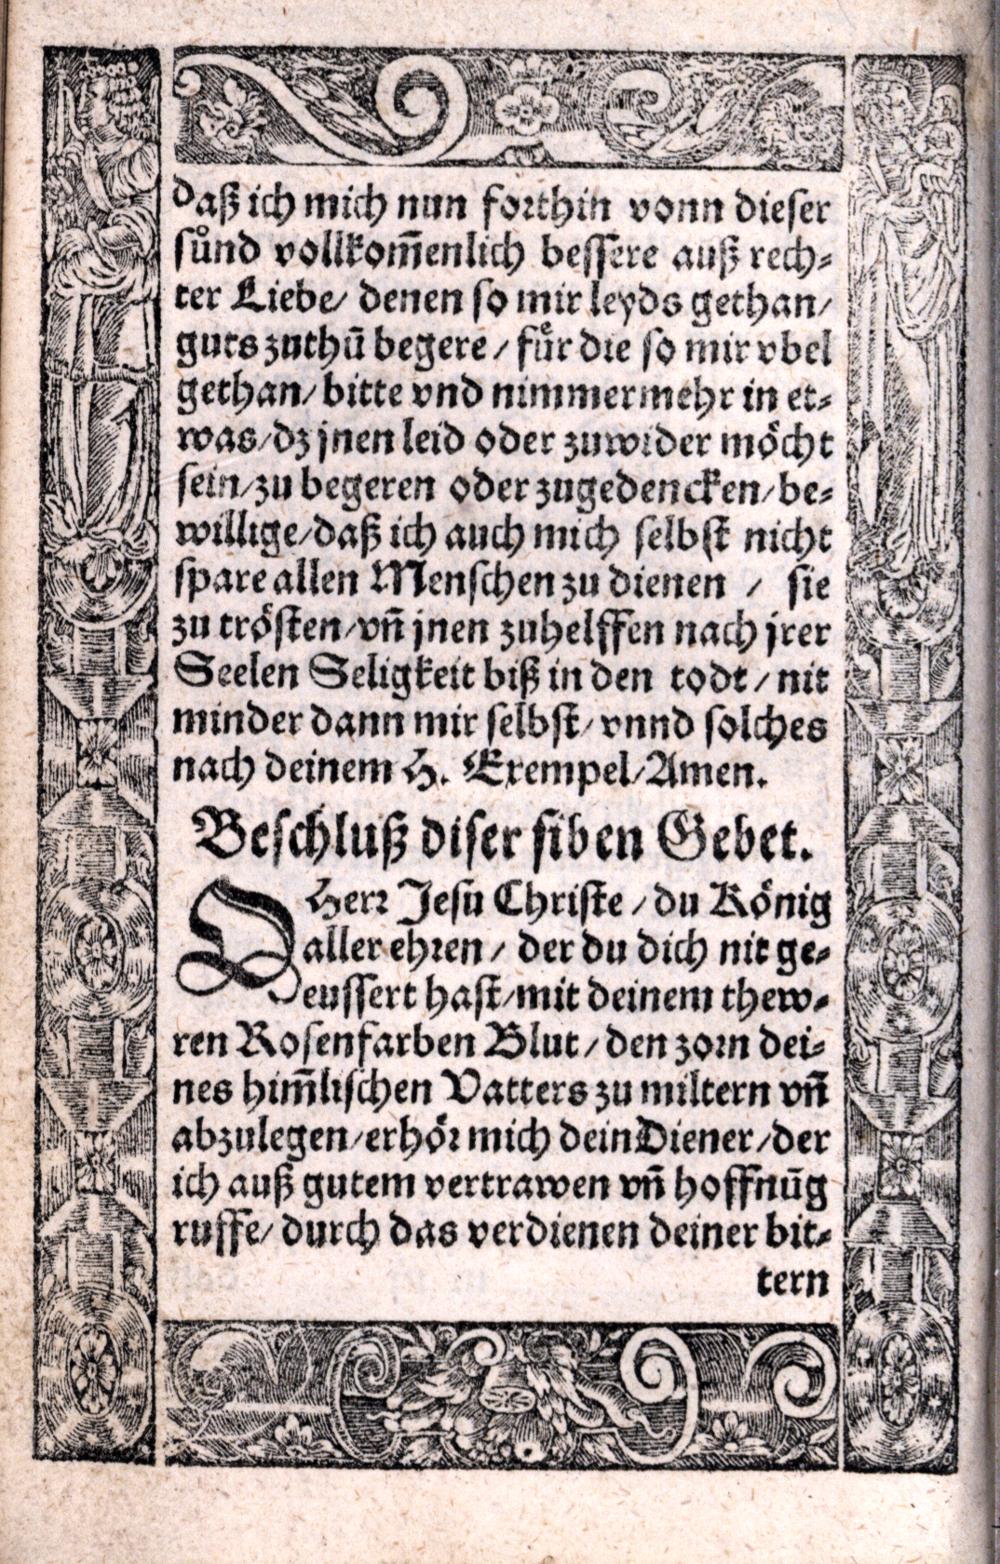 daß ich mich nun forthin vonn dieser
sůnd vollkom̃enlich bessere auß rech⸗
ter Liebe/ denen so mir leyds gethan/
guts zuthū begere/ fuͤr die so mir vbel
gethan/ bitte vnd nimmermehr in et⸗
was/ dz jnen leid oder zuwider moͤcht
sein/ zu begeren oder zugedencken/ be⸗
willige/ daß ich auch mich selbst nicht
spare allen Menschen zu dienen / sie
zu troͤsten/ vn̄ jnen zuhelffen nach jrer
Seelen Seligkeit biß in den todt/ nit
minder dann mir selbst/ vnnd solches
nach deinem H. Exempel/ Amen.
Beschluß diser siben Gebet.
O Herr Jesu Christe/ du Koͤnig
aller ehren/ der du dich nit ge⸗
eussert hast/ mit deinem thew⸗
ren Rosenfarben Blut/ den zorn dei⸗
nes him̄lischen Vatters zu miltern vn̄
abzulegen/ erhoͤr mich dein Diener/ der
ich auß gutem vertrawen vn̄ hoffnūg
ruffe/ durch das verdienen deiner bit⸗
tern